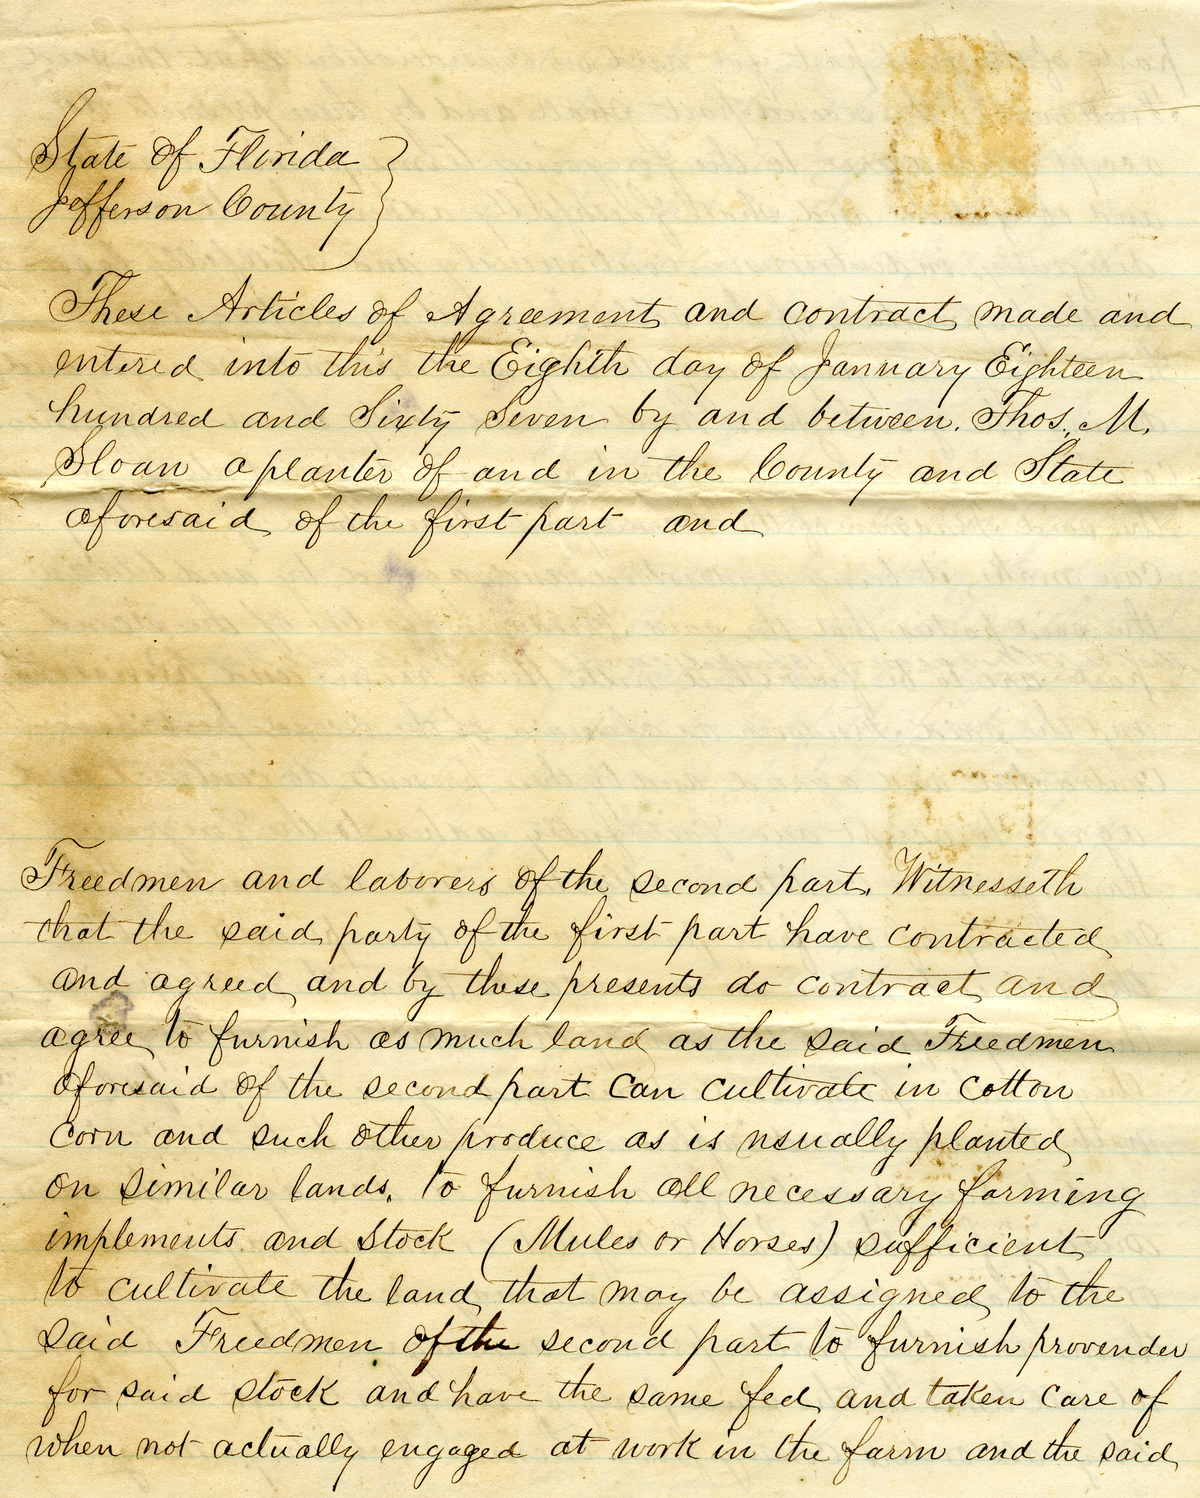 State of Florida
Jefferson County
These Articles of Agreement and contract made and
entered into this the Eighth day of January Eighteen
hundred and Sixty Seven by and between. Thos. M.
Sloan a planter of and in the County and State
aforesaid of the first part and
Freedmen and laborers of the second part, Witnesseth
that the said party of the first part have contracted
and agreed and by these presents do contract and
agree to furnish as much land as the said Freedmen
aforesaid of the second part can cultivate in cotton
corn and such other produce as is usually planted
on similar lands, to furnish all necessary farming
implements and stock (Mules or Horses) sufficient
to cultivate the land that may be assigned to the
said Freedmen of the second part to furnish provender
for said stock and have the same fed and taken care of
when not actually engaged at work in the farm and the said